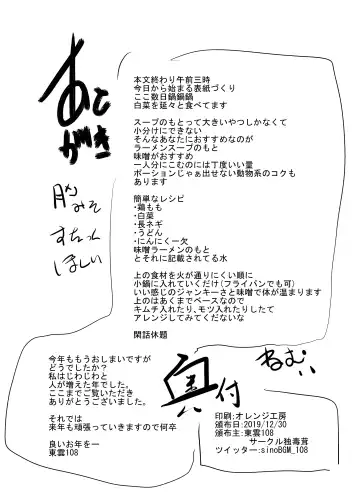 あとがき
本文終わり午前三時
今日から始まる表紙づくり
ここ数日鍋鍋鍋
白菜を延々と食べてます
スープのもとって大きいやつしかなくて
小分けにできない
そんなあなたにおすすめなのが
ラーメンスープのもと
味噌がおすすめ
一人分にこむのには丁度いい量
ポーションじゃぁ出せない動物系のコクも
あります
簡単なレシピ
・鶏もも
・白菜
・長ネギ
・うどん
・にんにく一欠
味噌ラーメンのもと
とそれに記載されてる水
上の食材を火が通りにくい順に
小鍋に入れていくだけ(フライパンでも可)
いい感じのジャンキーさと味噌で体が温まります
上のはあくまでベースなので
キムチ入れたり、モツ入れたりして
アレンジしてみてくだないな
閑話休題
みそ
すたっく
ほしい
今年ももうおしまいですが
どうでしたか?
私はじわじわと
人が増えた年でした。
ここまでご覧いただき
ありがとうございました。
それでは
来年も頑張っていきますので何卒
良いお年を一
東雲108
奥付
ねむい
印刷:オレンジ工房
頒布日:2019/12/30
頒布主:東雲108
サークル独毒茸
ツイッター:sinoBGM_108